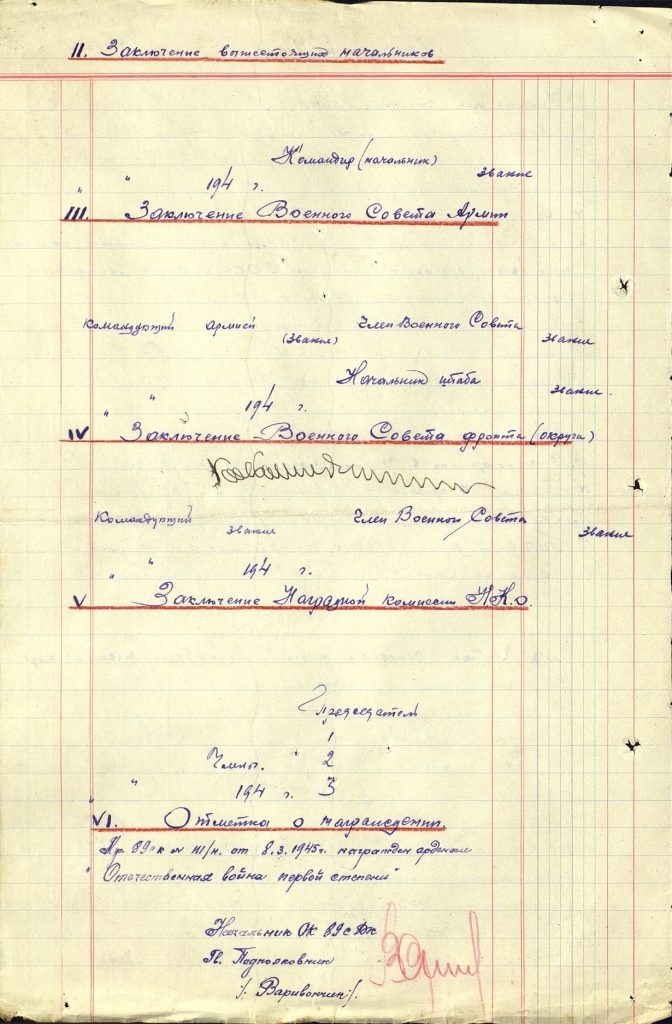 II. Заключение вышестоящих начальников
Командир (начальник) звание
" " 194 г.
III. Заключение Военного Совета Армии
Командующий армией (звание) Член Военного Совета звание
Начальник штаба звание.
" " 194 г.
IV Заключение Военного Совета фронта (округа)
Командующий звание Член Военного Совета звание
" " 194 г.
V Заключение Наградной комиссии Н.К.О.
Председатель
1
Члены. 2
" " 194 г. 3
VI. Отметка о награждении.
Пр. 89 ск № 111/н. от 8.3.1945г. награжден орденом
"Отечественная война первой степени"
Начальник ОК 89 с
Гв. Подполковник
/. Варивончик /.